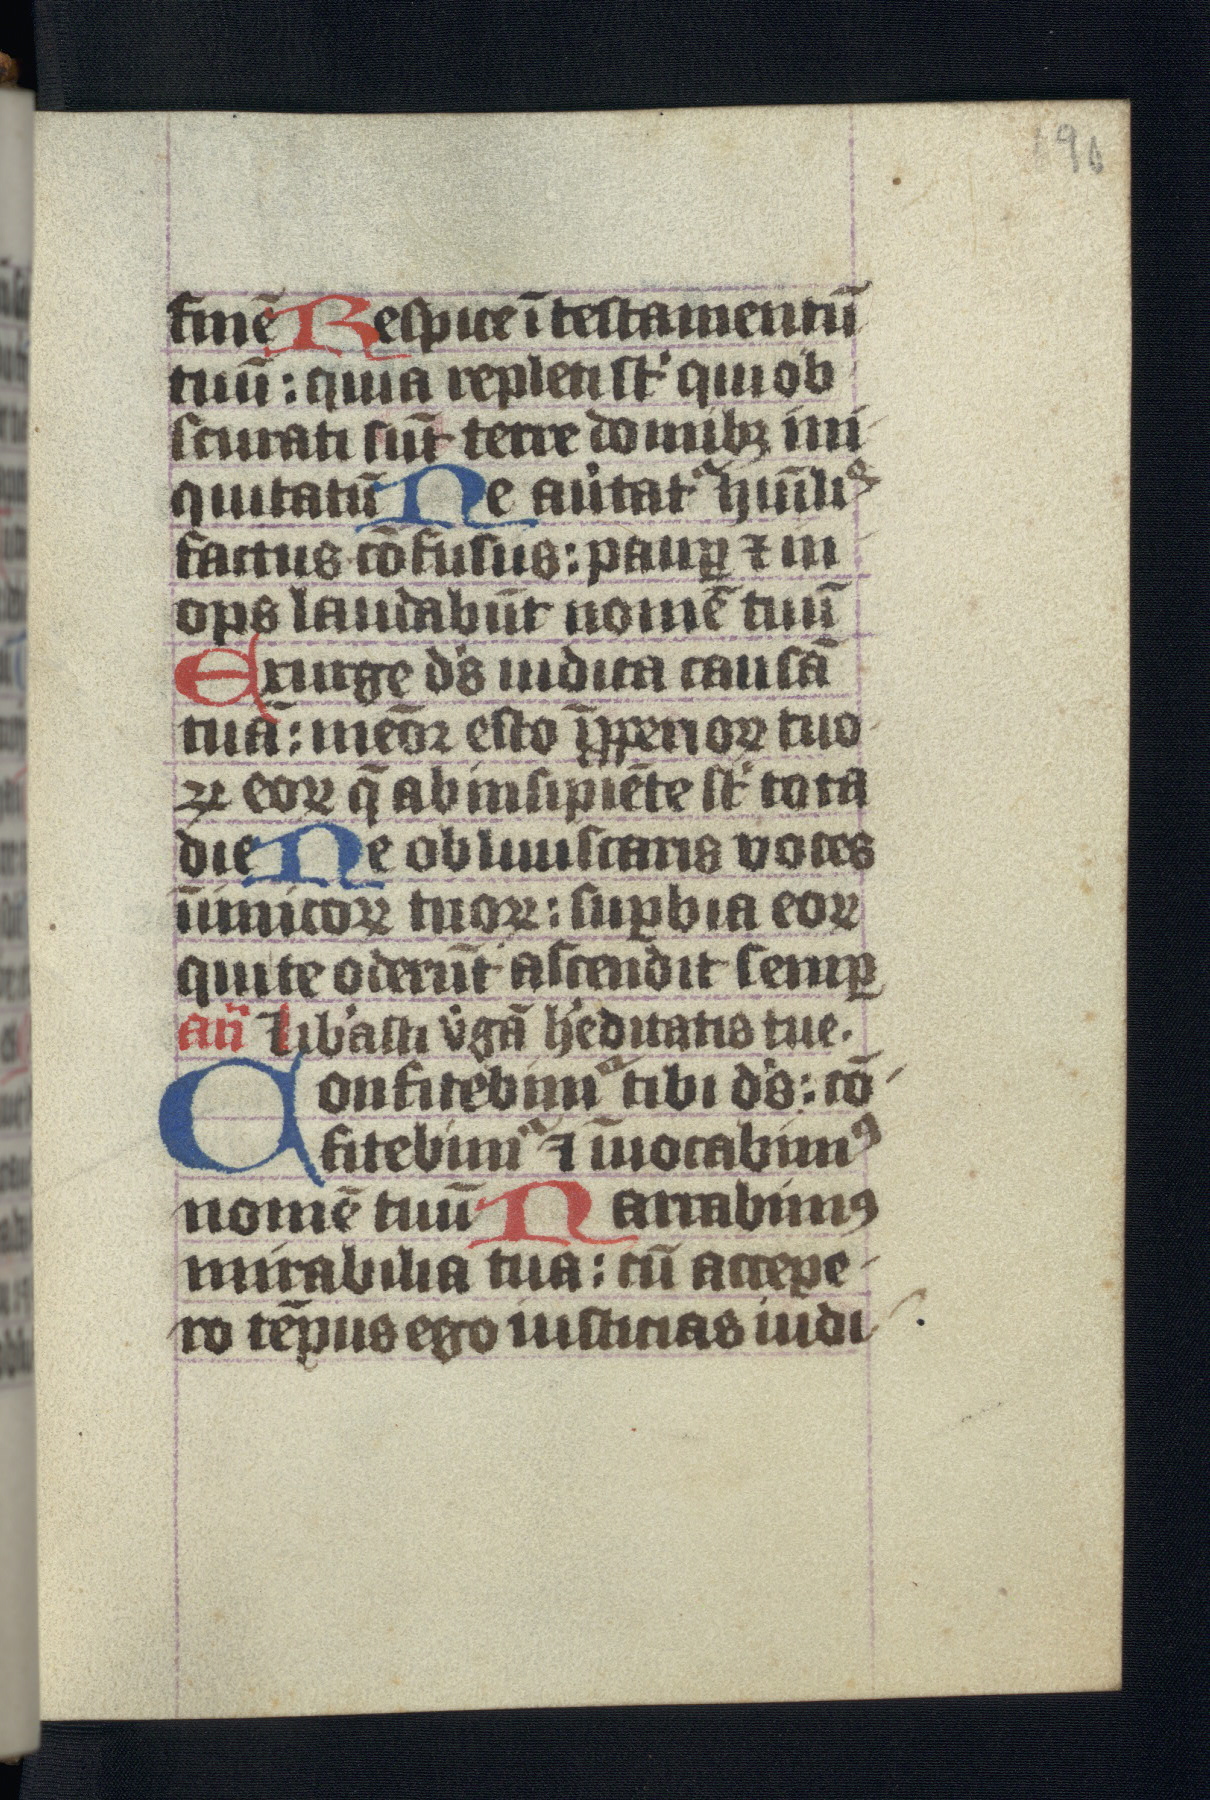 90
finē Respice ī testamentū
tuū : quia repleti st̄ qui ob
scurati sūt terre domibꝫ ini
quitatū Ne au̾tat᷑ hūīlis
factus cōfusus : paup̲ ⁊ in
ops laudabūt nomē tuū
Exurge ds̄ iudica causā
tuā : meōr esto īp̲p̲erioꝝ tuo
ꝝ eoꝝ q̄ ab insipiēte st̄ tota
die Ne obliuiscaris voces
īimicoꝝ tuoꝝ : sup̲bia eoꝝ
qui te oderūt ascendit semp̲
añ Lib̾asti v̾gā h̾editatis tue.
Confitebimᷣ tibi ds̄ : cō
fitebimᷣ ⁊ īuocabimꝰ
nomē tuū Narrabimꝰ
mirabilia tua : cū accepe
ro tēpus ego iusticias iudi